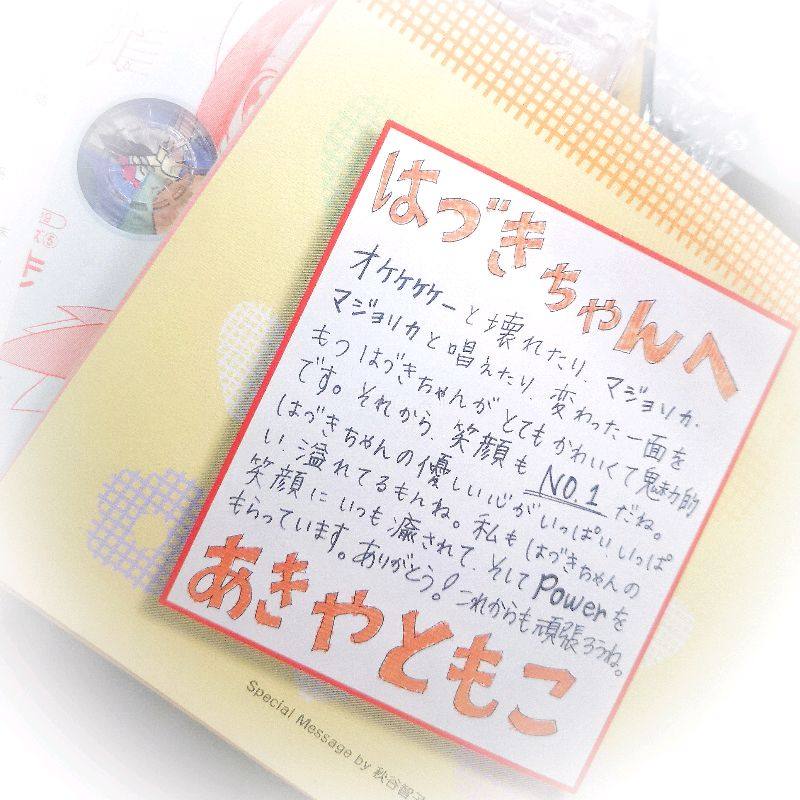 はづきちゃんへ
オケケケケーと壊れたり、マジョリカ・
マジョリカと唱えたり、変わった一面を
もつはづきちゃんがとてもかわいくて魅力的
です。それから、笑顔もNO.1だね。
はづきちゃんの優しい心がいっぱい、いっぱ
い、溢れてるもんね。私もはづきちゃんの
笑顔にいつも癒されて、そしてPowerを
もらっています。ありがとう！これからも頑張ろうね。
あきやともこ
Special Message by 秋谷智子